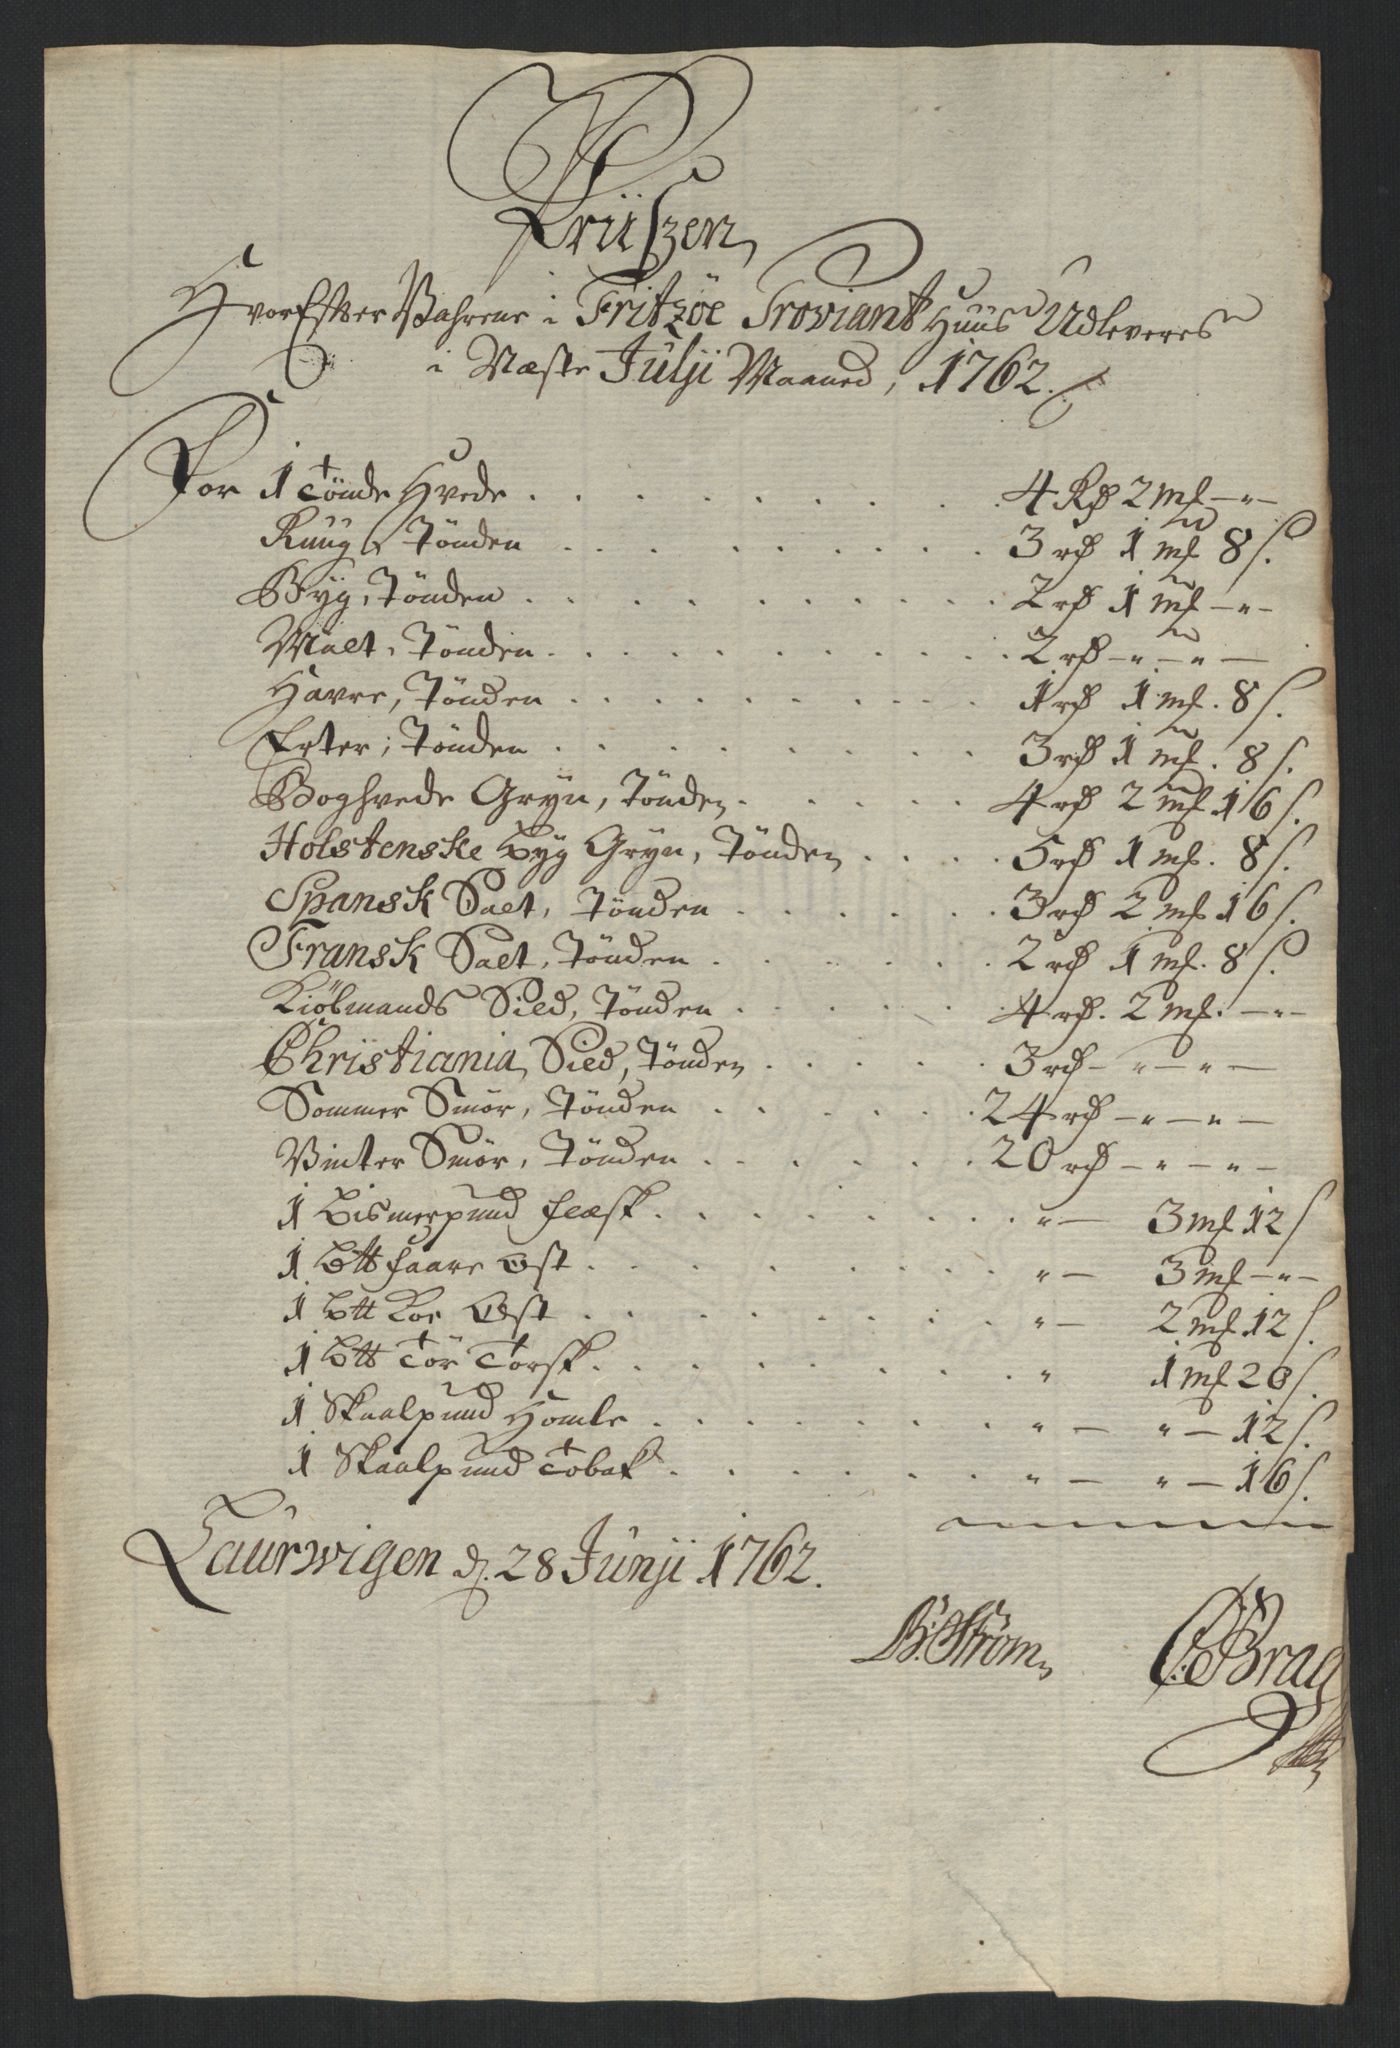 Priiszen
Hvor Effter Vahrene i Fritzöe Proviant Huus Udleveres
i Næste Julji Maaned, 1762.
For 1 Tönde Hvede . . . . . . . . 4 Rd 2 mk — " —
Ruug, Tönden . . . . . . . . . 3 rd 1 mk 8 s.
Byg, Tönden . . . . . . . . . . 2 rd 1 mk — " —
Malt, Tönden . . . . . . . . . . 2 rd — " — " —
Havre, Tönden . . . . . . . . . 1 rd 1 mk. 8 s.
Erter, Tönden . . . . . . . . . 3 rd 1 mk. 8 s.
Boghvede Gryn, Tönden . . . . . 4 rd 2 mk 16 s.
Holstenske Byg Gryn, Tönden . . . . 5 rd 1 mk. 8 s.
Spansk Salt, Tönden . . . . . . 3 rd 2 mk 16 s.
Fransk Salt, Tönden . . . . . . 2 rd 1 mk. 8 s.
Kiöbmands Sild, Tönden . . . . . . 4 rd. 2 mk. — " —
Christiania Sild, Tönden . . . . . 3 rd — " — " —
Sommer Smör, Tönden . . . . . . 24 rd — " — " —
Vinter Smör, Tönden . . . . . . 20 rd — " — " —
1 Bismerpund Flæsk . . . . . . . . " — 3 mk 12 s
1 B℔ Faare Ost . . . . . . . . . " — 3 mk — " —
1 B℔ Koe Ost . . . . . . . . . " — 2 mk 12 s.
1 B℔ Tör Torsk . . . . . . . . . " 1 mk 20 s.
1 Skaalpund Homle . . . . . . . . " — " — 12 s.
1 Skaalpund Tobak . . . . . . . " — " — 16 s.
Laurwigen d. 28 Junji 1762.
B: Ström C: Brag